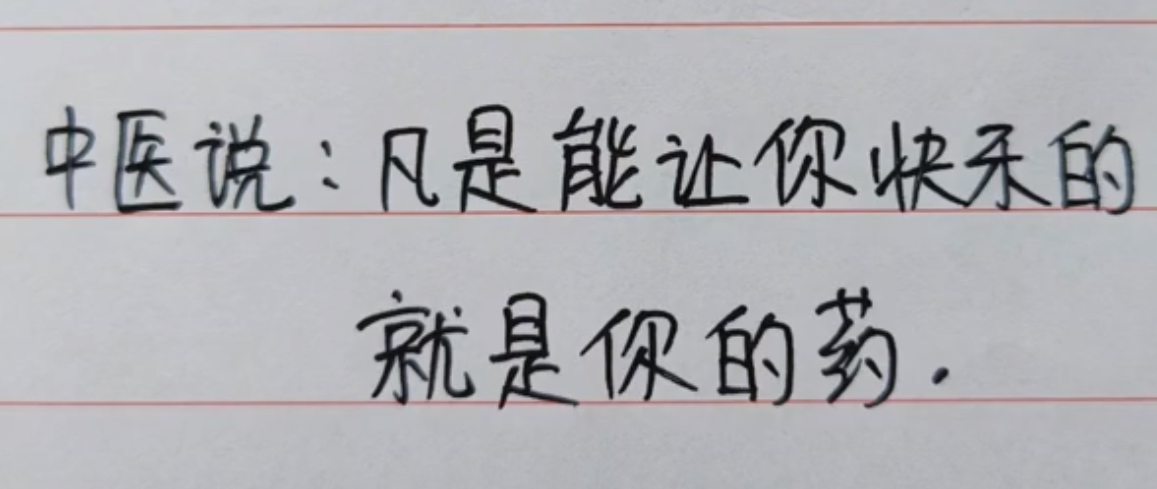 中医说:凡是能让你快乐的
就是你的药.